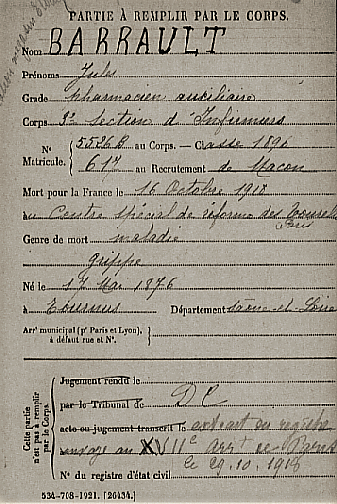 PARTIE À REMPLIR PAR LE CORPS.
Nom BARRAULT
Prénoms Jules
Grade Pharmacien auxiliaire
Corps Section d'Infirmiers
N° 5526B au Corps. — Classe 1896
Matricule. 617 au Recrutement de Macon
Mort pour la France le 16 Octobre 1918
au Centre spécial de réforme des
Paris
Genre de mort maladie
grippe
Né le 17 Mai 1876
à Tournus Département Saône-et-Loire
Arr' municipal (p' Paris et Lyon),
à défaut rue et N°.
Cette partie n'est pas à remplir par le Corps.
Jugement rendu le
par le Tribunal de DC
acte ou jugement transcrit le extrait du registre
envoyé au XVIIe Arrt de Paris
le 29.10.1918
N° du registre d'état civil
534-708-1921. [26434.]